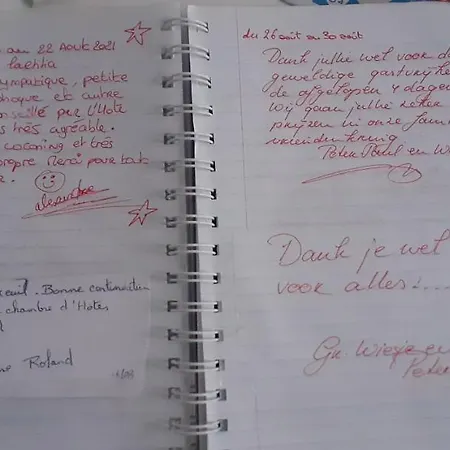 au 22 Août 2021
Laetitia
sympatique, petite
phoque et autre
onseillé par l'Hôte
s très agréable.
cocooning et très
propre Merci pour tout
ueil. Bonne continuation
chambre d'Hôtes
Roland
du 26 août au 30 août
Dank jullie wel voor de
geweldige gastvrijhe
de afgelopen 4 dagen
Wij gaan jullie zeker
prijzen in onze fam
vriendenkring
Peter Paul en Wi
Dank je wel
voor alles!....
Gr. Wiesje en
Peter